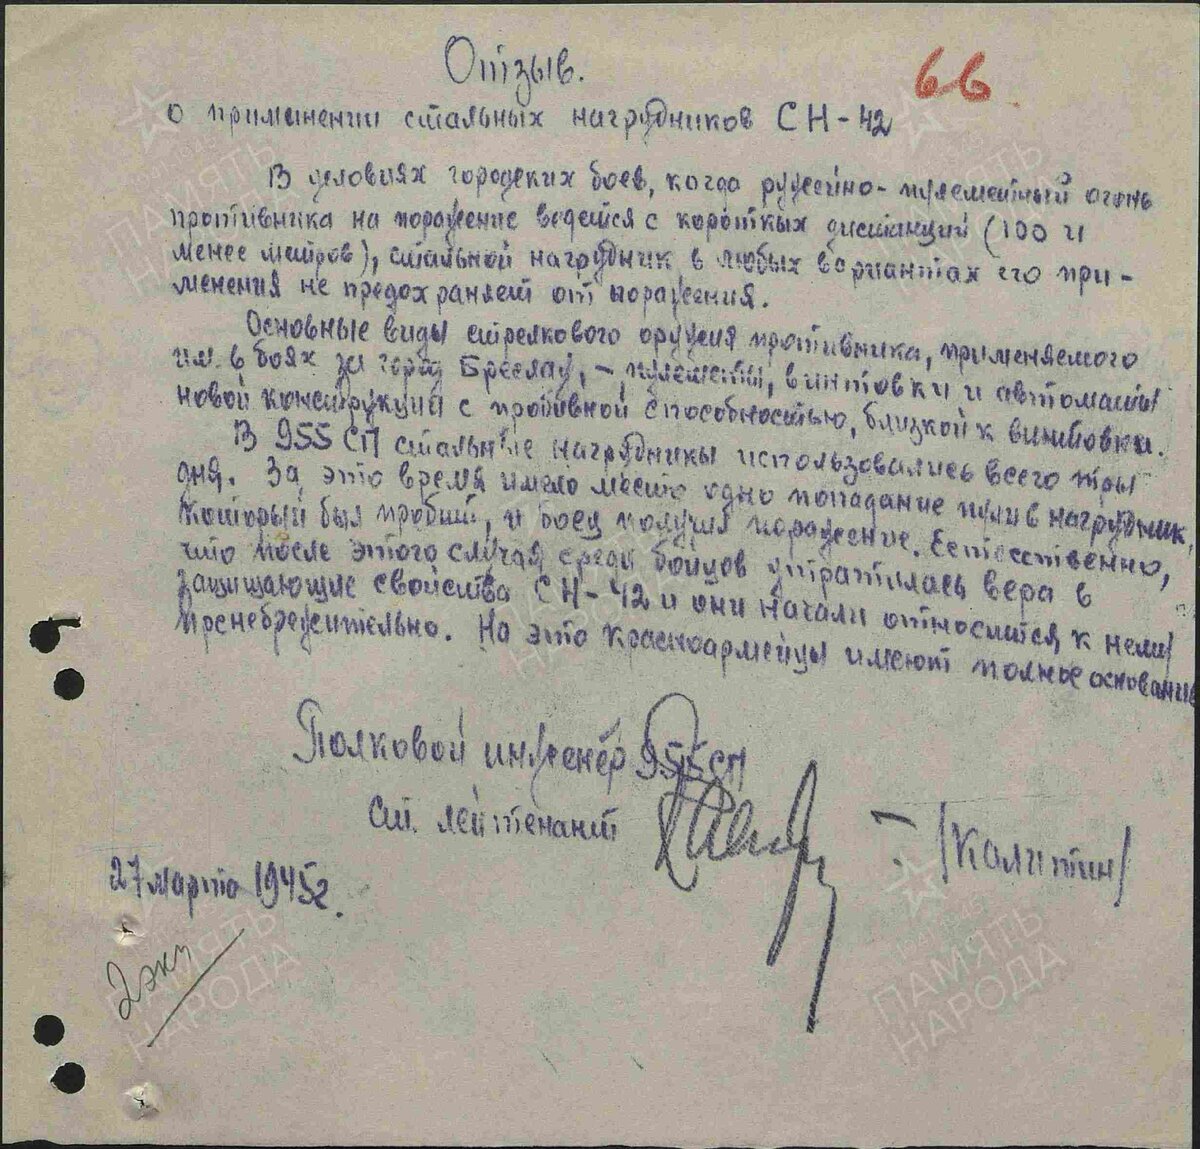 Отзыв.
66
о применении стальных нагрудников СН-42
В условиях городских боев, когда ружейно-пулеметный огонь
противника на поражение ведется с коротких дистанций (100 и
менее метров), стальной нагрудник в любых вариантах его при-
менения не предохраняет от поражения.
Основные виды стрелкового оружия противника, применяемого
им в боях за город Бреслау, – пулеметы, винтовки и автоматы
новой конструкции с пробивной способностью, близкой к винтовки.
В 955 СП стальные нагрудники использовались всего тры
дня. За это время имело место одно попадание пули в нагрудник,
который был пробит, и боец получил поражение. Естественно,
что после этого случая среди бойцов утратилась вера в
защищающие свойства СН-42 и они начали относится к нему
пренебрежительно. На это красноармейцы имеют полное основание
Полковой инженер 955 СП
Ст. лейтенант /Калитин/
27 марта 1945г.
2 экз
ПАМЯТЬ
НАРОДА